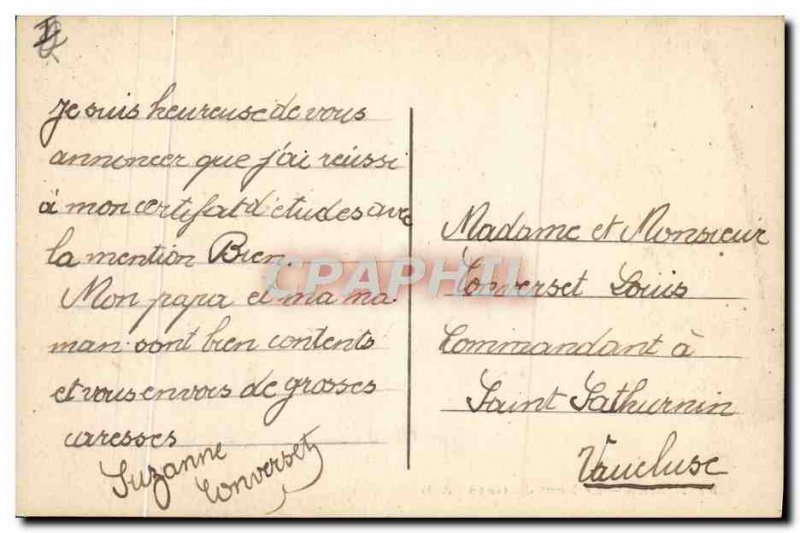 Je suis heureuse de vous
annoncer que j'ai réussi
à mon certifat d'études avec
la mention Bien.
Mon papa et ma ma
man sont bien contents
et vous envois de grosses
caresses
Suzanne
Converset
Madame et Monsieur
Converset Louis
Commandant à
Saint Sathurnin
Vaucluse
CPAPHIL